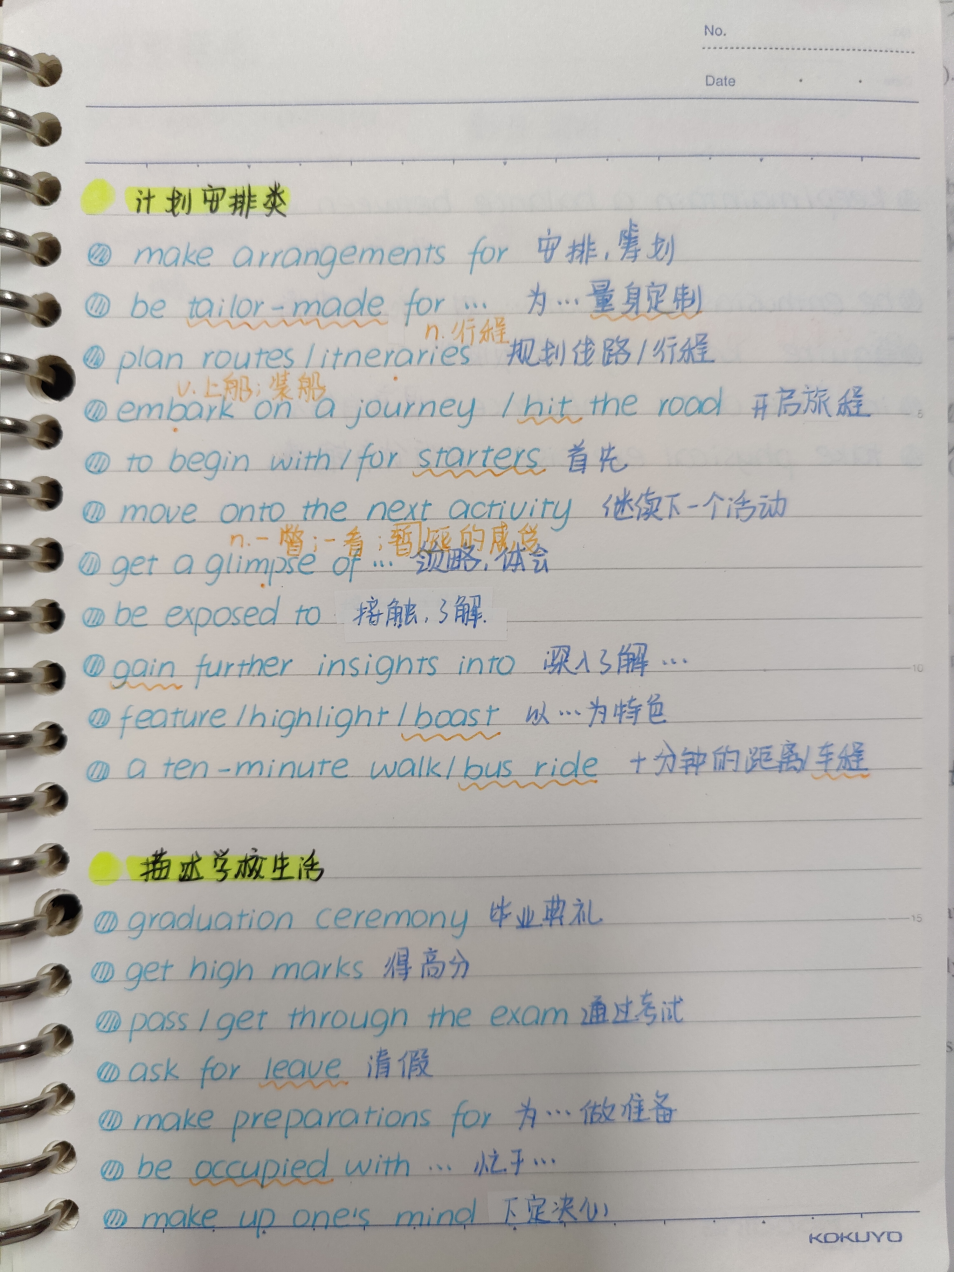 No.
Date
计划安排类
make arrangements for 安排,筹划
be tailor-made for … 为…量身定制
n.行程
plan routes/itneraries 规划线路/行程
v.上船;装船
embark on a journey /hit the road 开启旅程
to begin with/for starters 首先
move onto the next activity 继续下一个活动
n.一瞥;一看;暂短的感觉
get a glimpse of … 领略,体会
be exposed to 接触,了解.
gain further insights into 深入了解…
feature/highlight/boast 以…为特色
a ten-minute walk/bus ride 十分钟的距离/车程
描述学校生活
graduation ceremony 毕业典礼
get high marks 得高分
pass/get through the exam 通过考试
ask for leave 请假
make preparations for 为…做准备
be occupied with … 忙于…
make up one's mind 下定决心
KOKUYO